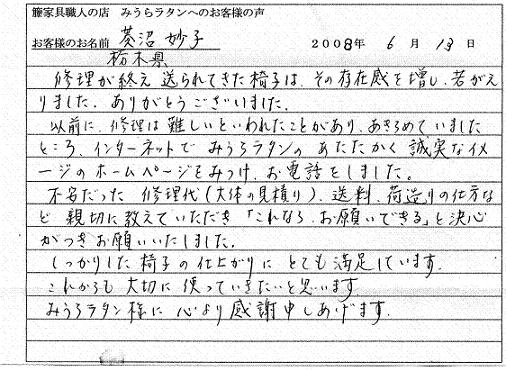 籐家具職人の店 みうらラタンへのお客様の声
お客様のお名前 菱沼 妙子 2008年 6月 13日
栃木県
修理が終え 送られてきた椅子は、その存在感を増し、若がえ
りました。ありがとうございました。
以前に、修理は難しいといわれたことがあり、あきらめていました
ところ、インターネットで みうらラタンの あたたかく 誠実なイメ
ージのホームページをみつけ、お電話をしました。
不安だった 修理代(大体の見積り)、送料、荷造りの仕方な
ど 親切に教えていただき「これなら、お願いできる」と決心
がつきお願いいたしました。
しっかりした 椅子の仕上がりに とても満足しています。
これからも 大切に 使っていきたいと思います
みうらラタン様に 心より感謝申しあげます.